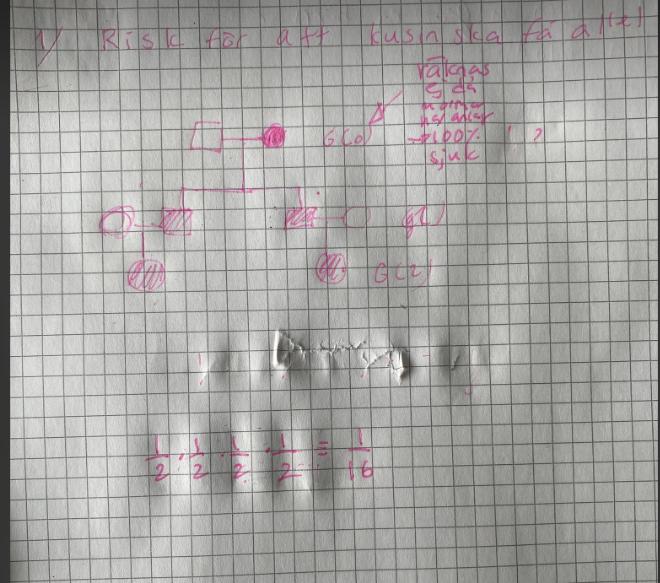 1) Risk för att kusin ska få allel
räknas
ej då
mormor
har anlag
→100%
sjuk ! ?
G(0)
g(1)
G(2)
1/2 · 1/2 · 1/2 · 1/2 = 1/16